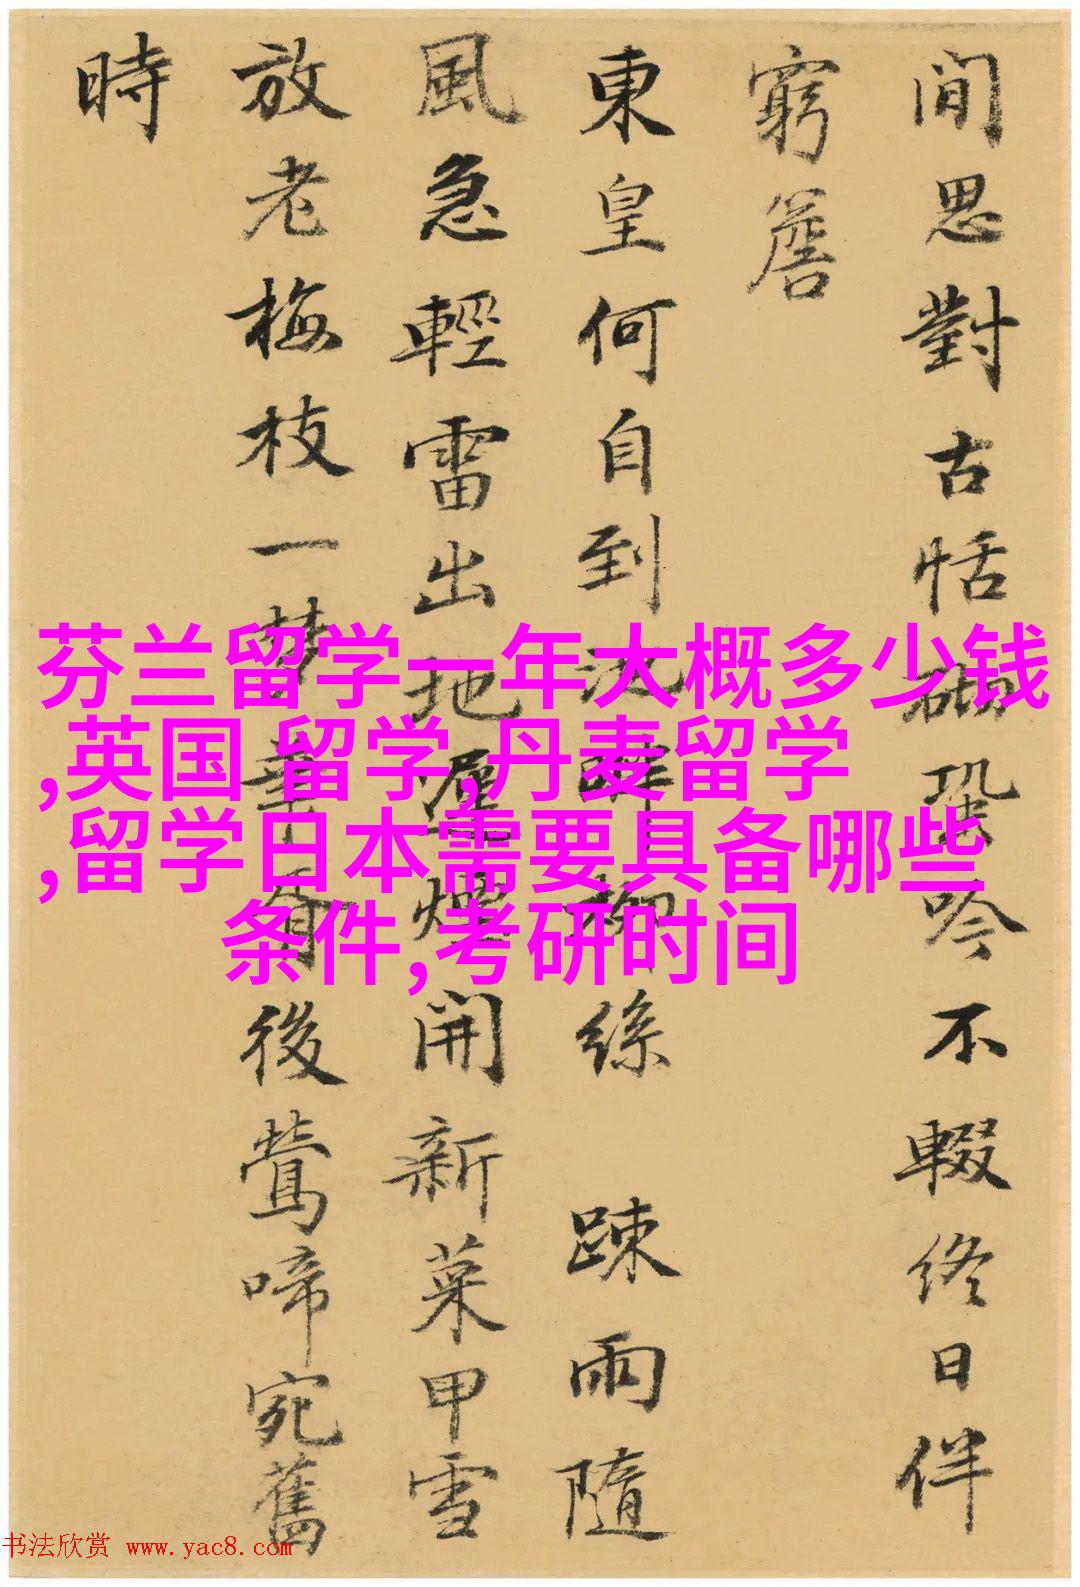 閒思對古恬砌蛩吟不輟終日伴
窮簷
東皇何自到池畔柳絲踈雨隨
風急輕雷出地遲煙開新菜甲雪
放老梅枝一夢華胥後鶯啼宛舊
時
芬兰留学一年大概多少钱
,英国 留学,丹麦留学
,留学日本需要具备哪些
条件,考研时间
书法欣赏 www.yac8.com